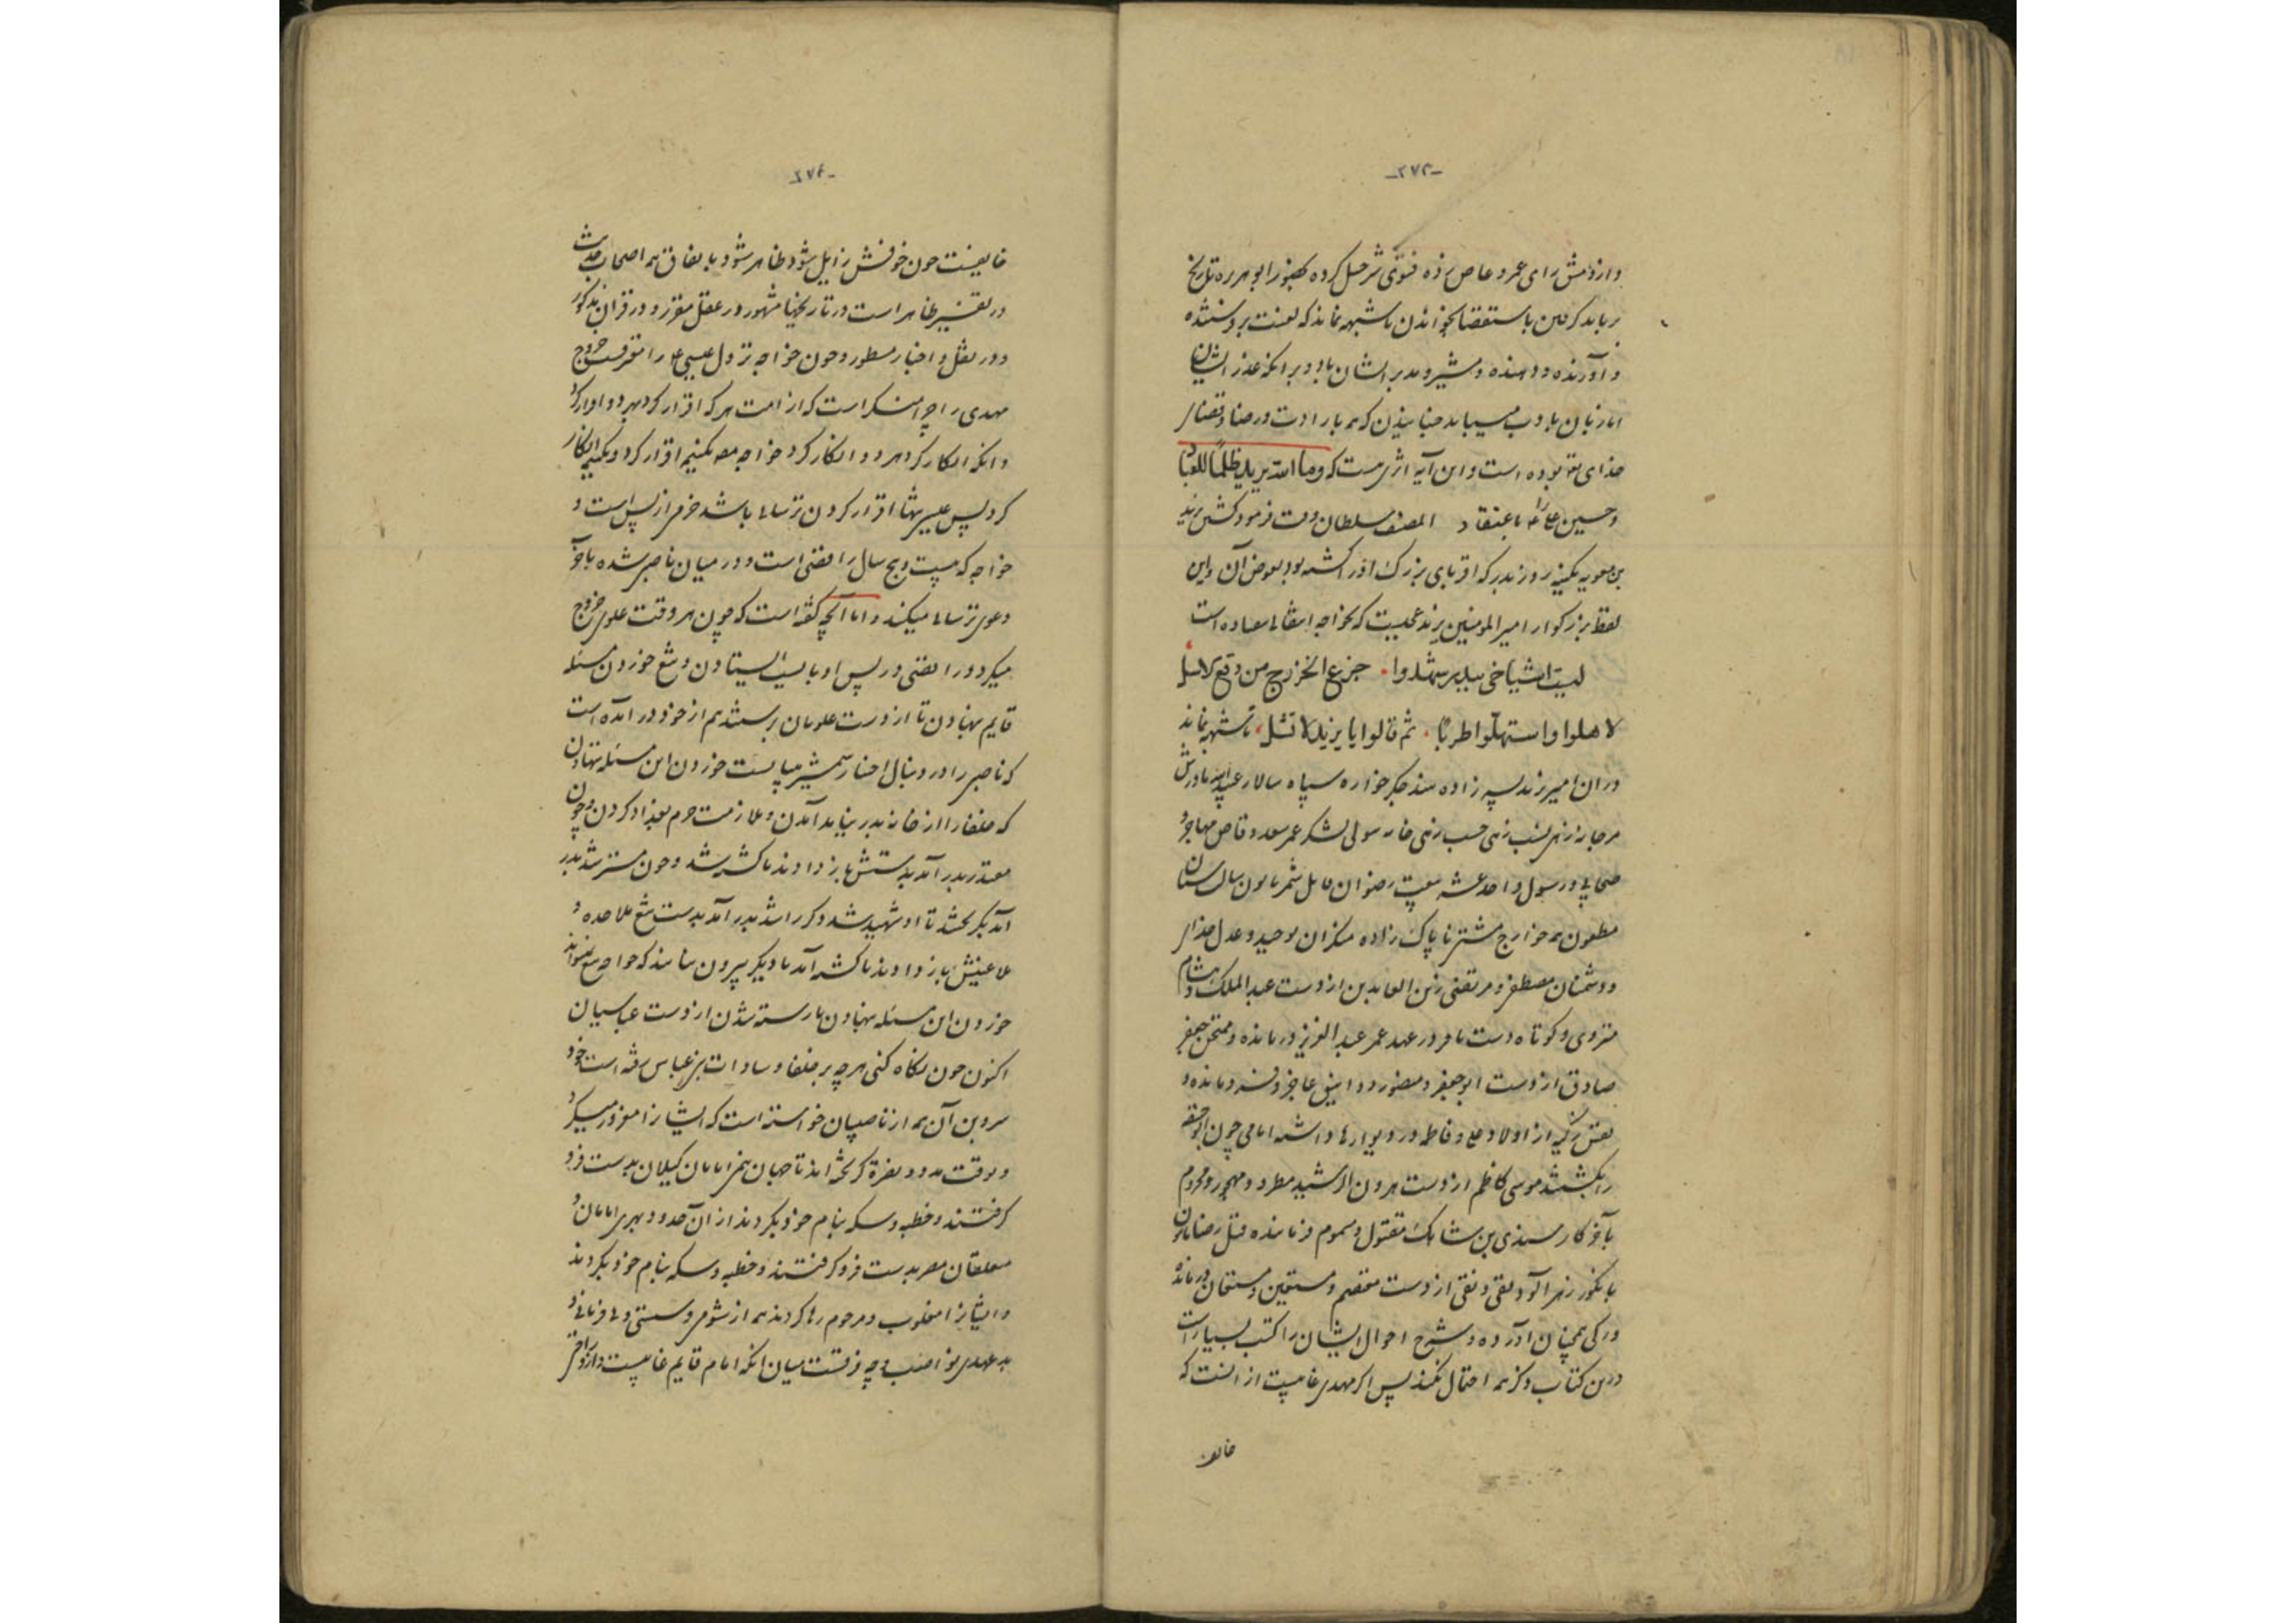 -۲۷۳-
و از دمش رای عمرو عاص زده فتوی شرحبیل کرده بحضور ابو هریره تاریخ
بر باید گرفتن باستقصا بخواندن تا شبهه نماند که لعنت بر دوستنده
و آورنده و دهنده و مشیر و مدبر ایشان باد و بر آنکه عذر ایشان
اما زبان با دب میباید جنبانیدن که همه بارادت و رضا و قضای
خدای تعالی بوده است و این آیه اثری نیست که وما الله یرید ظلما للعباد
و حسین علی را باعتقاد المصنف سلطان وقت فرمود کشتن یزید
بن معویه بکینه روز بدر که اقربای بزرگ او را کشته بود بعوض آن و این
لفظ بزرگوار امیر المومنین یزید عجبست که خواجه انتقالی افتاده است
لیت اشیاخی ببدر شهدوا . جزع الخزرج من وقع الاسل
لاهلوا واستهلوا طربا . ثم قالوا یا یزید لا تشل ، تا شبهه نماند
در آن امیر زند پسر زاده هند جگر خواره سپاه سالار عبید الله مادرش
مرجانه زهی نسب زهی حسب زهی خانه سولی لشکر عمر سعد وقاص مهاجر و
صحابی در رسول و احد عشره بیعت رضوان عامل شمر ملعون سال سنان
مطعون همه خوارج مشتر ناپاک زاده منکران توحید و عدل خدای
و دشمنان مصطفی و مرتضی زین العابدین از دست عبد الملک و هشام
منزوی و کوتاه دست باقر در عهد عمر عبد العزیز درمانده و ممتحن جعفر
صادق از دست ابو جعفر منصور دوانیقی عاجز و فرو مانده و
نفس زکیه از اولاد علی و فاطمه در دیوارها داشته امامی چون ابو حنیفه
را بکشتند موسی کاظم از دست هرون الرشید مطرود و مهجور و محروم
بآخر کار سندی بن شاهک مقتول و مسموم فرمانده قتل رضا مامون
بانگور زهر آلود تقی و نقی از دست معتصم و مستعین و مستعان درمانده
و زکی همچنان آورده و شرح احوال ایشان را کتب بسیار است
درین کتاب ذکر همه احتمال نکند پس اگر مهدی غایبست از آنست که
خایف
-۲۷۴-
خایفست چون خوفش زایل شود ظاهر شود باتفاق همه اصحاب حدیث
در تفسیر ظاهر است در تاریخها مشهور در عقل مقرر و در قران مذکور
و در نقل و اخبار مسطور و چون خواجه نزول عیسی ع را مقرفست خروج
مهدی را چرا منکر است که از امت هر که اقرار کرد بهر دو اقرار کرد
و آنکه انکار کرد هر دو را انکار کرد خواجه بیک نیمه اقرار کرد و بیک نیمه انکار
کرد پس عیسی تنها اقرار کردن ترسایی باشد خرمی از پس است و
خواجه که بیست و پنج سال رافضی است و در میان ناصبی شده بآخر
دعوی ترسایی میکند و اما آنچه گفته است که چون هر وقت علوی خروج
میکرد و رافضی در پس او بایست ایستادن و تیغ خوردن مسئله
قایم بنهادن تا از دست علویان برستند هم از خود در آمده است
که ناصبی را در دنبال اخبار شمشیر میبایست خوردن این مسئله بنهادن
که خلفا را از خانه بدر نباید آمدن و ملازمت حرم بغداد کردن و چون
مقتدر بدر آمد بدستش باز دادند تا کشته شد و چون مسترشد بدر
آمد بگرختند تا او شهید شد و گر راشد بدر آمد بدست تیغ ملاحده و
ملاعینش باز دادند تا کشته آمد تا دیگر بیرون نیایند که خواجه تیغ نتواند
خوردن این مسئله بنهادن تا رسته شدن از دست عباسیان
اکنون چون نگاه کنی هرچه بر خلفا و سادات بنی عباس رفته است خود
سر و بن آن همه از ناصبیان خواسته است که ایشانرا مغرور میکرد
و بوقت مدد و نصرة گریخته اند تا جهان بنی امامان گیلان بدست فرو
گرفتند و خطبه و سکه بنام خود بکردند از آن حدود بهری امامان و
متعلقان مصر بدست فرو گرفتند و خطبه و سکه بنام خود بکردند
و ایشانرا مغلوب و محروم رها کردند همه از شومی و سستی و نافرمانی و
بد عهدی نواصب و چه فرقست میان آنکه امام قایم غایبست و از او اثر